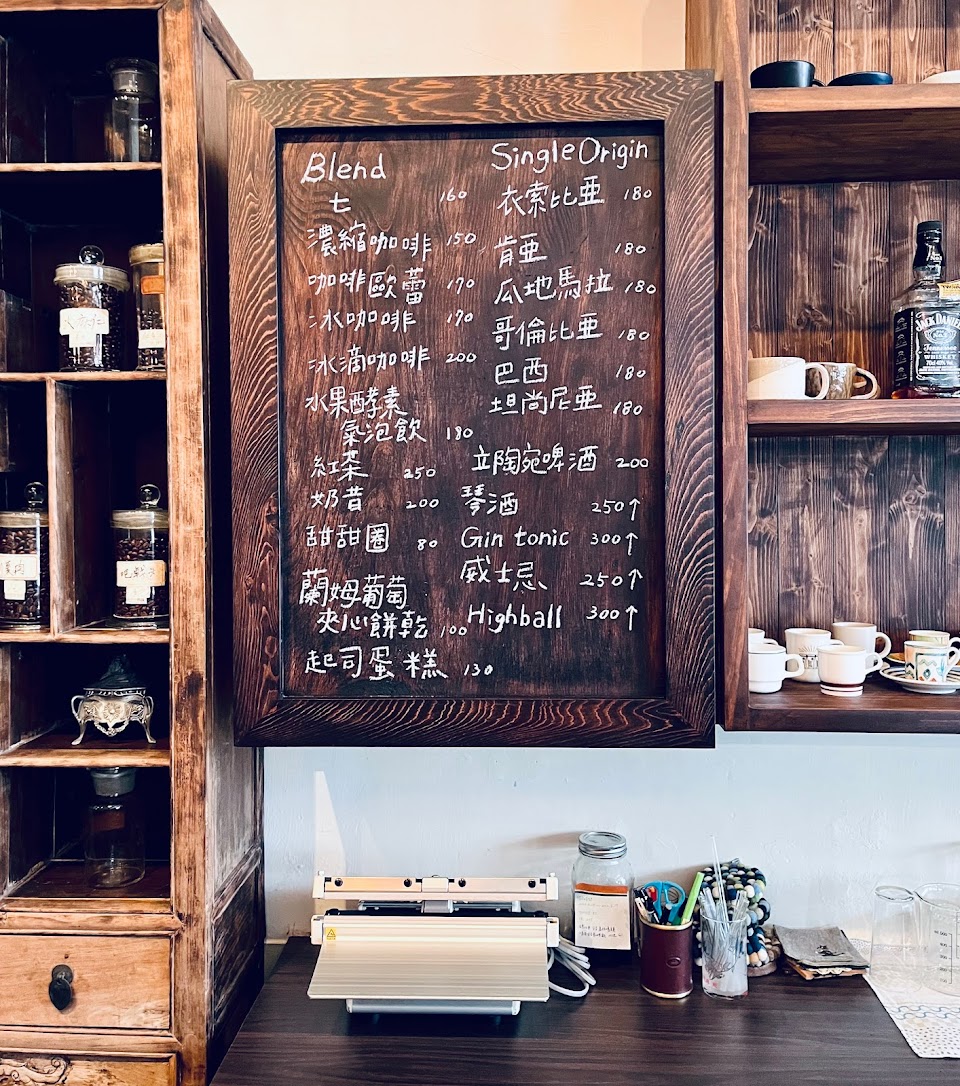 Blend
七 160
濃縮咖啡 150
咖啡歐蕾 170
冰咖啡 170
冰滴咖啡 200
水果酵素
氣泡飲 180
紅茶 250
奶昔 200
甜甜圈 80
蘭姆葡萄
夾心餅乾 100
起司蛋糕 130
Single Origin
衣索比亞 180
肯亞 180
瓜地馬拉 180
哥倫比亞 180
巴西 180
坦尚尼亞 180
立陶宛啤酒 200
琴酒 250↑
Gin tonic 300↑
威士忌 250↑
Highball 300↑
JACK DANIEL'S
Tennessee
WHISKEY